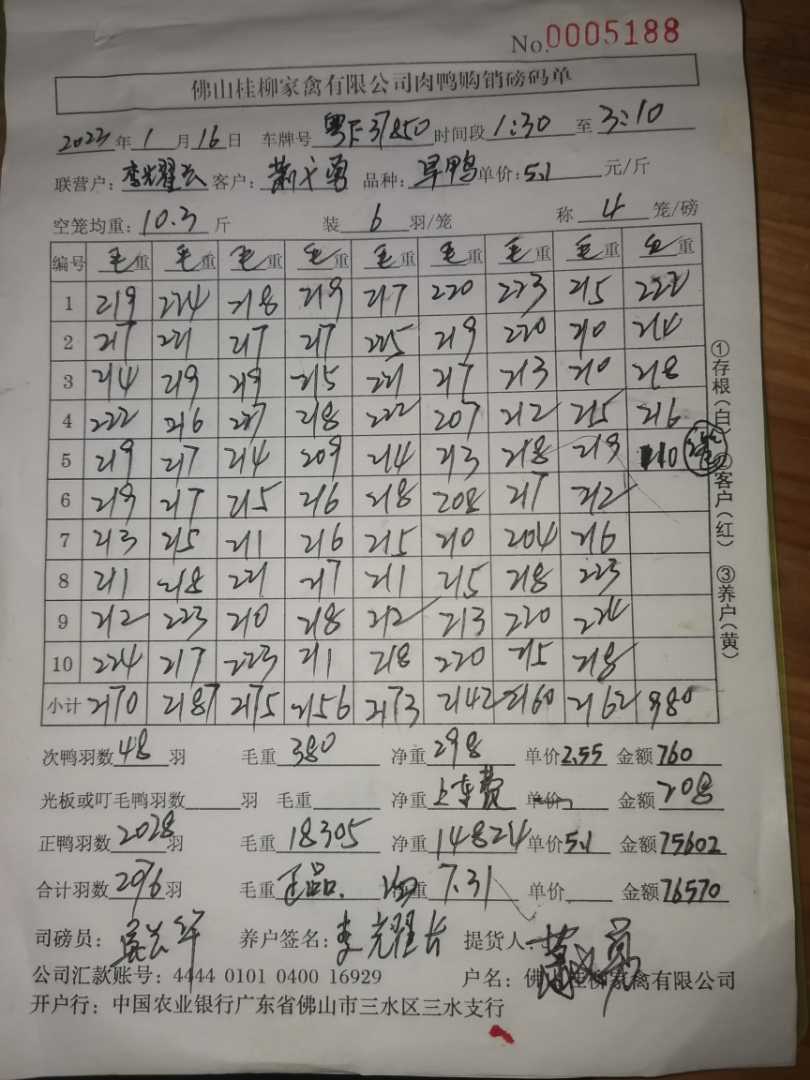 No.0005188
佛山桂柳家禽有限公司肉鸭购销磅码单
2023年1月16日 车牌号 粤F37850 时间段 1:30 至 3:10
联营户: 李光耀 客户: 勇 品种: 旱鸭 单价:5.1 元/斤
空笼均重: 10.3 斤 装 6 羽/笼 称 4 笼/磅
编号 毛重 毛重 毛重 毛重 毛重 毛重 毛重 毛重 毛重
1 219 224 218 219 217 220 223 215 222
2 217 221 217 217 225 219 220 210 214
3 214 219 219 215 221 217 213 210 218
4 222 216 227 218 222 207 212 215 216
5 219 217 214 209 214 213 218 219 110
6 219 217 215 216 218 208 217 212
7 213 215 211 216 215 210 204 216
8 211 218 221 217 211 215 218 223
9 212 223 210 218 212 213 220 224
10 224 217 223 211 218 220 215 218
小计 2170 2187 2175 2156 2173 2142 2160 2162 980
次鸭羽数 48 羽 毛重 380 净重 298 单价 2.55 金额 760
光板或叮毛鸭羽数 羽 毛重 净重 上车费 单价 金额 208
正鸭羽数 2028 羽 毛重 18305 净重 14824 单价 5.1 金额 75602
合计羽数 2076 羽 毛重 正品. 重 7.31 单价 金额 76570
司磅员: 养户签名: 李光耀 提货人:
公司汇款账号: 4444 0101 0400 16929 户名: 佛山桂柳家禽有限公司
开户行: 中国农业银行广东省佛山市三水区三水支行
①存根(白) ②客户(红) ③养户(黄)